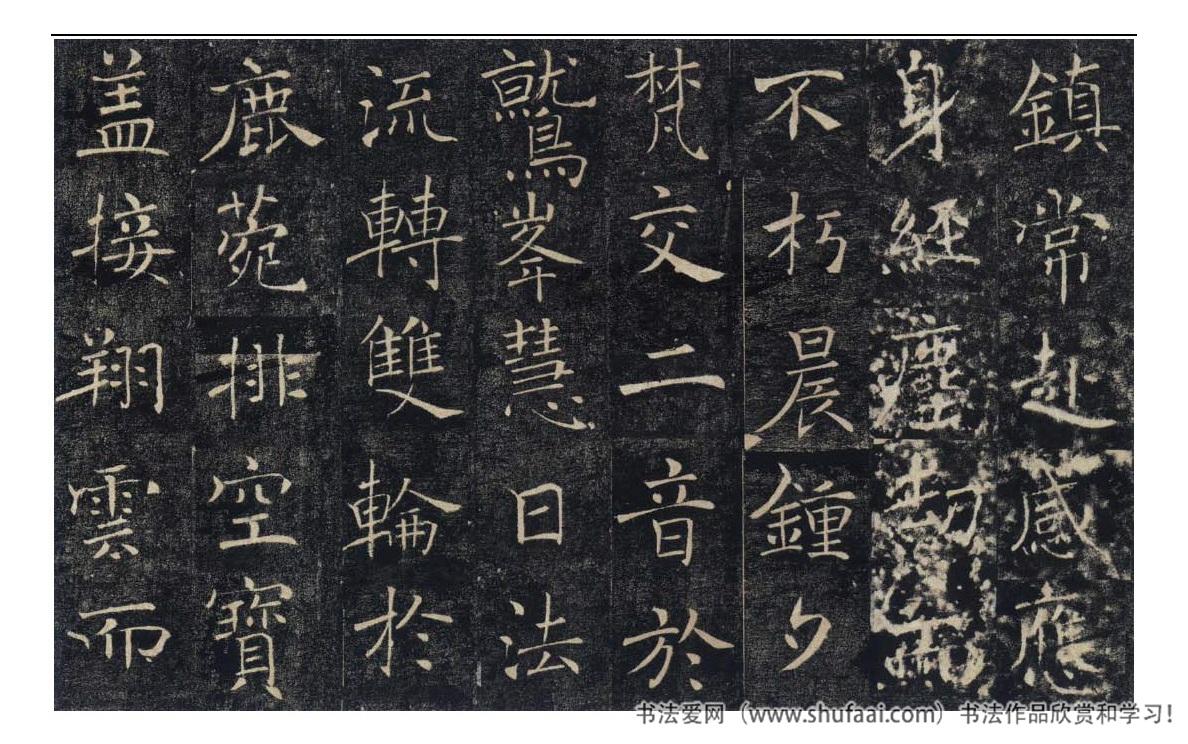 鎮常赴感應
身經塵劫而
不朽晨鍾夕
梵交二音於
鷲峯慧日法
流轉雙輪於
鹿菀排空寶
盖接翔雲而
书法爱网（www.shufaai.com）书法作品欣赏和学习！